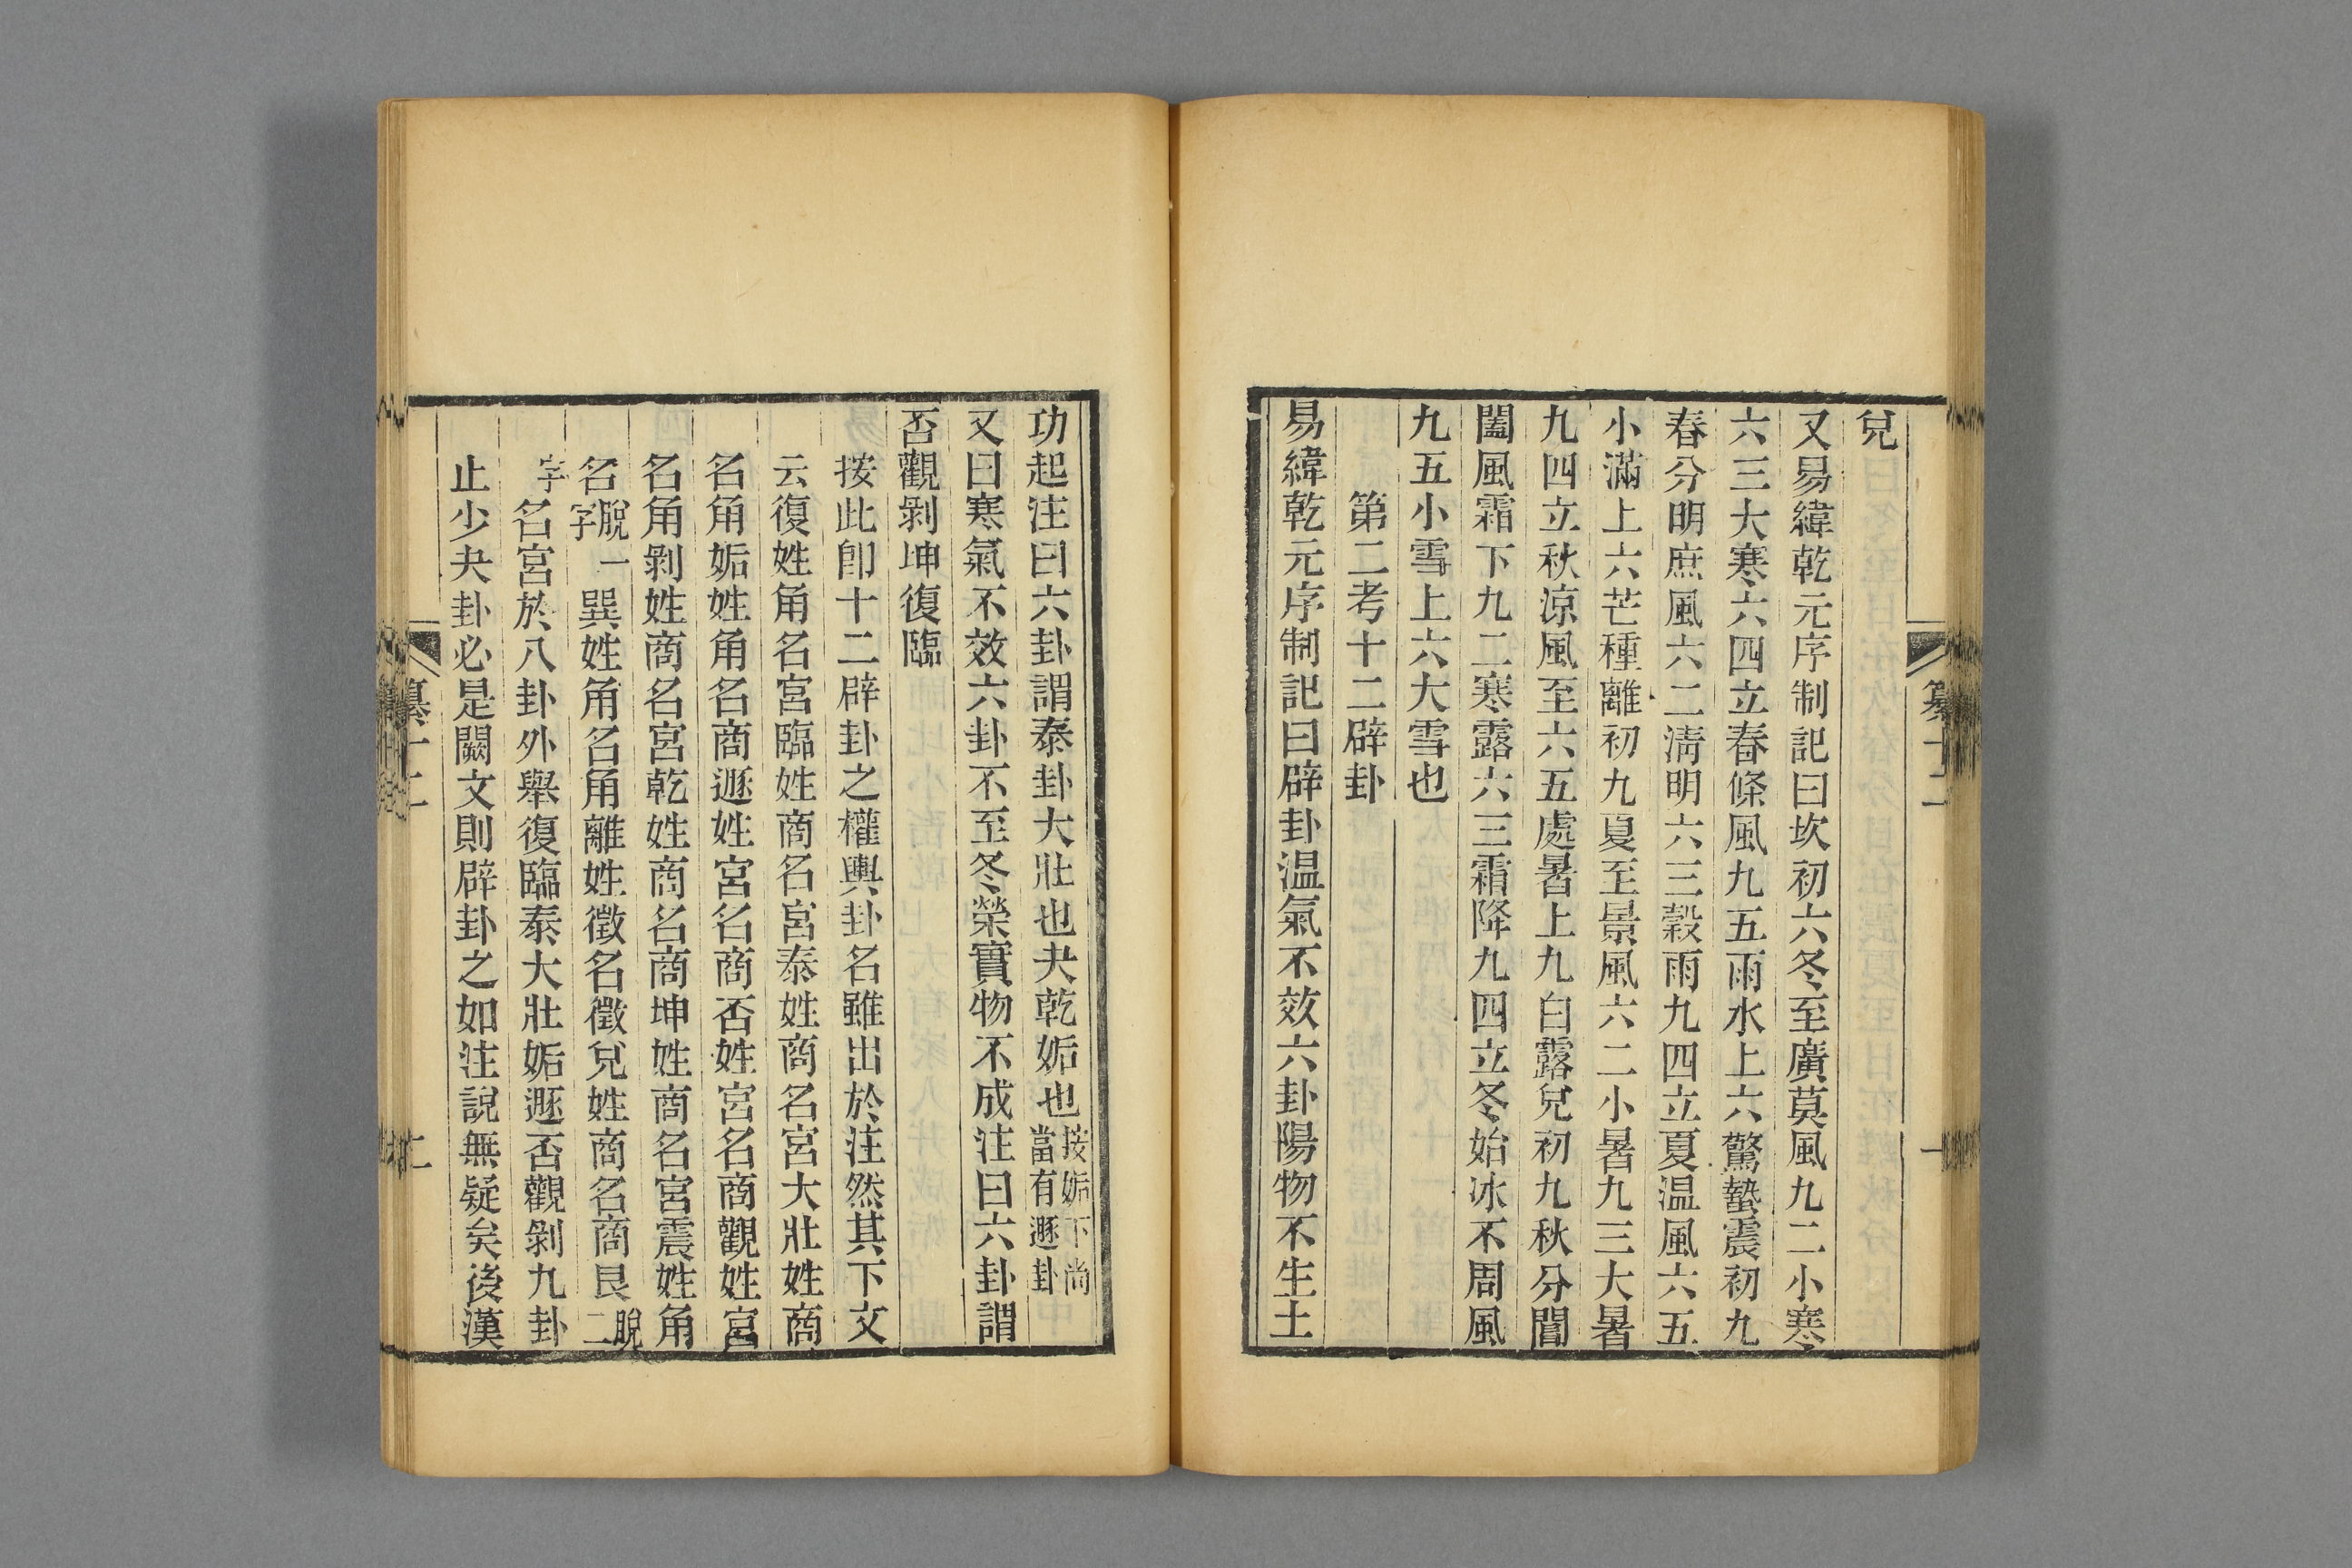 兌
又易緯乾元序制記曰坎初六冬至廣莫風九二小寒
六三大寒六四立春條風九五雨水上六驚蟄震初九
春分明庶風六二淸明六三穀雨九四立夏温風六五
小滿上六芒種離初九夏至景風六二小暑九三大暑
九四立秋涼風至六五處暑上九白露兌初九秋分閶
闔風霜下九二寒露六三霜降九四立冬始冰不周風
九五小雪上六大雪也
第二考十二辟卦
易緯乾元序制記曰辟卦温氣不效六卦陽物不生土
功起注曰六卦謂泰卦大壯也夬乾姤也按姤下尚當有遯卦
又曰寒氣不效六卦不至冬榮實物不成注曰六卦謂
否觀剝坤復臨
按此卽十二辟卦之權輿卦名雖出於注然其下文
云復姓角名宮臨姓商名宮泰姓商名宮大壯姓商
名角姤姓角名商遯姓宮名商否姓宮名商觀姓宮
名角剝姓商名宮乾姓商名商坤姓商名宮震姓角
名脫一字巽姓角名角離姓徵名徵兌姓商名商艮脫二
字名宮於八卦外舉復臨泰大壯姤遯否觀剝九卦
止少夬卦必是闕文則辟卦之如注說無疑矣後漢
纂十二
二